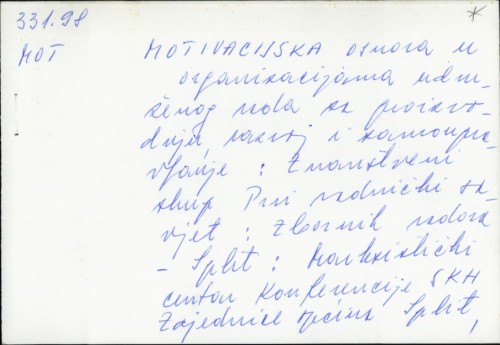 331.98 *
MOT
MOTIVACIJSKA osnova u
organizacijama udru-
ženog rada za proizvo-
dnju, razvoj i samoupra-
vljanje : Znanstveni
skup Prvi radnički sa-
vjet : Zbornik radova
- Split : Marksistički
centar Konferencije SKH
Zajednice općina Split,